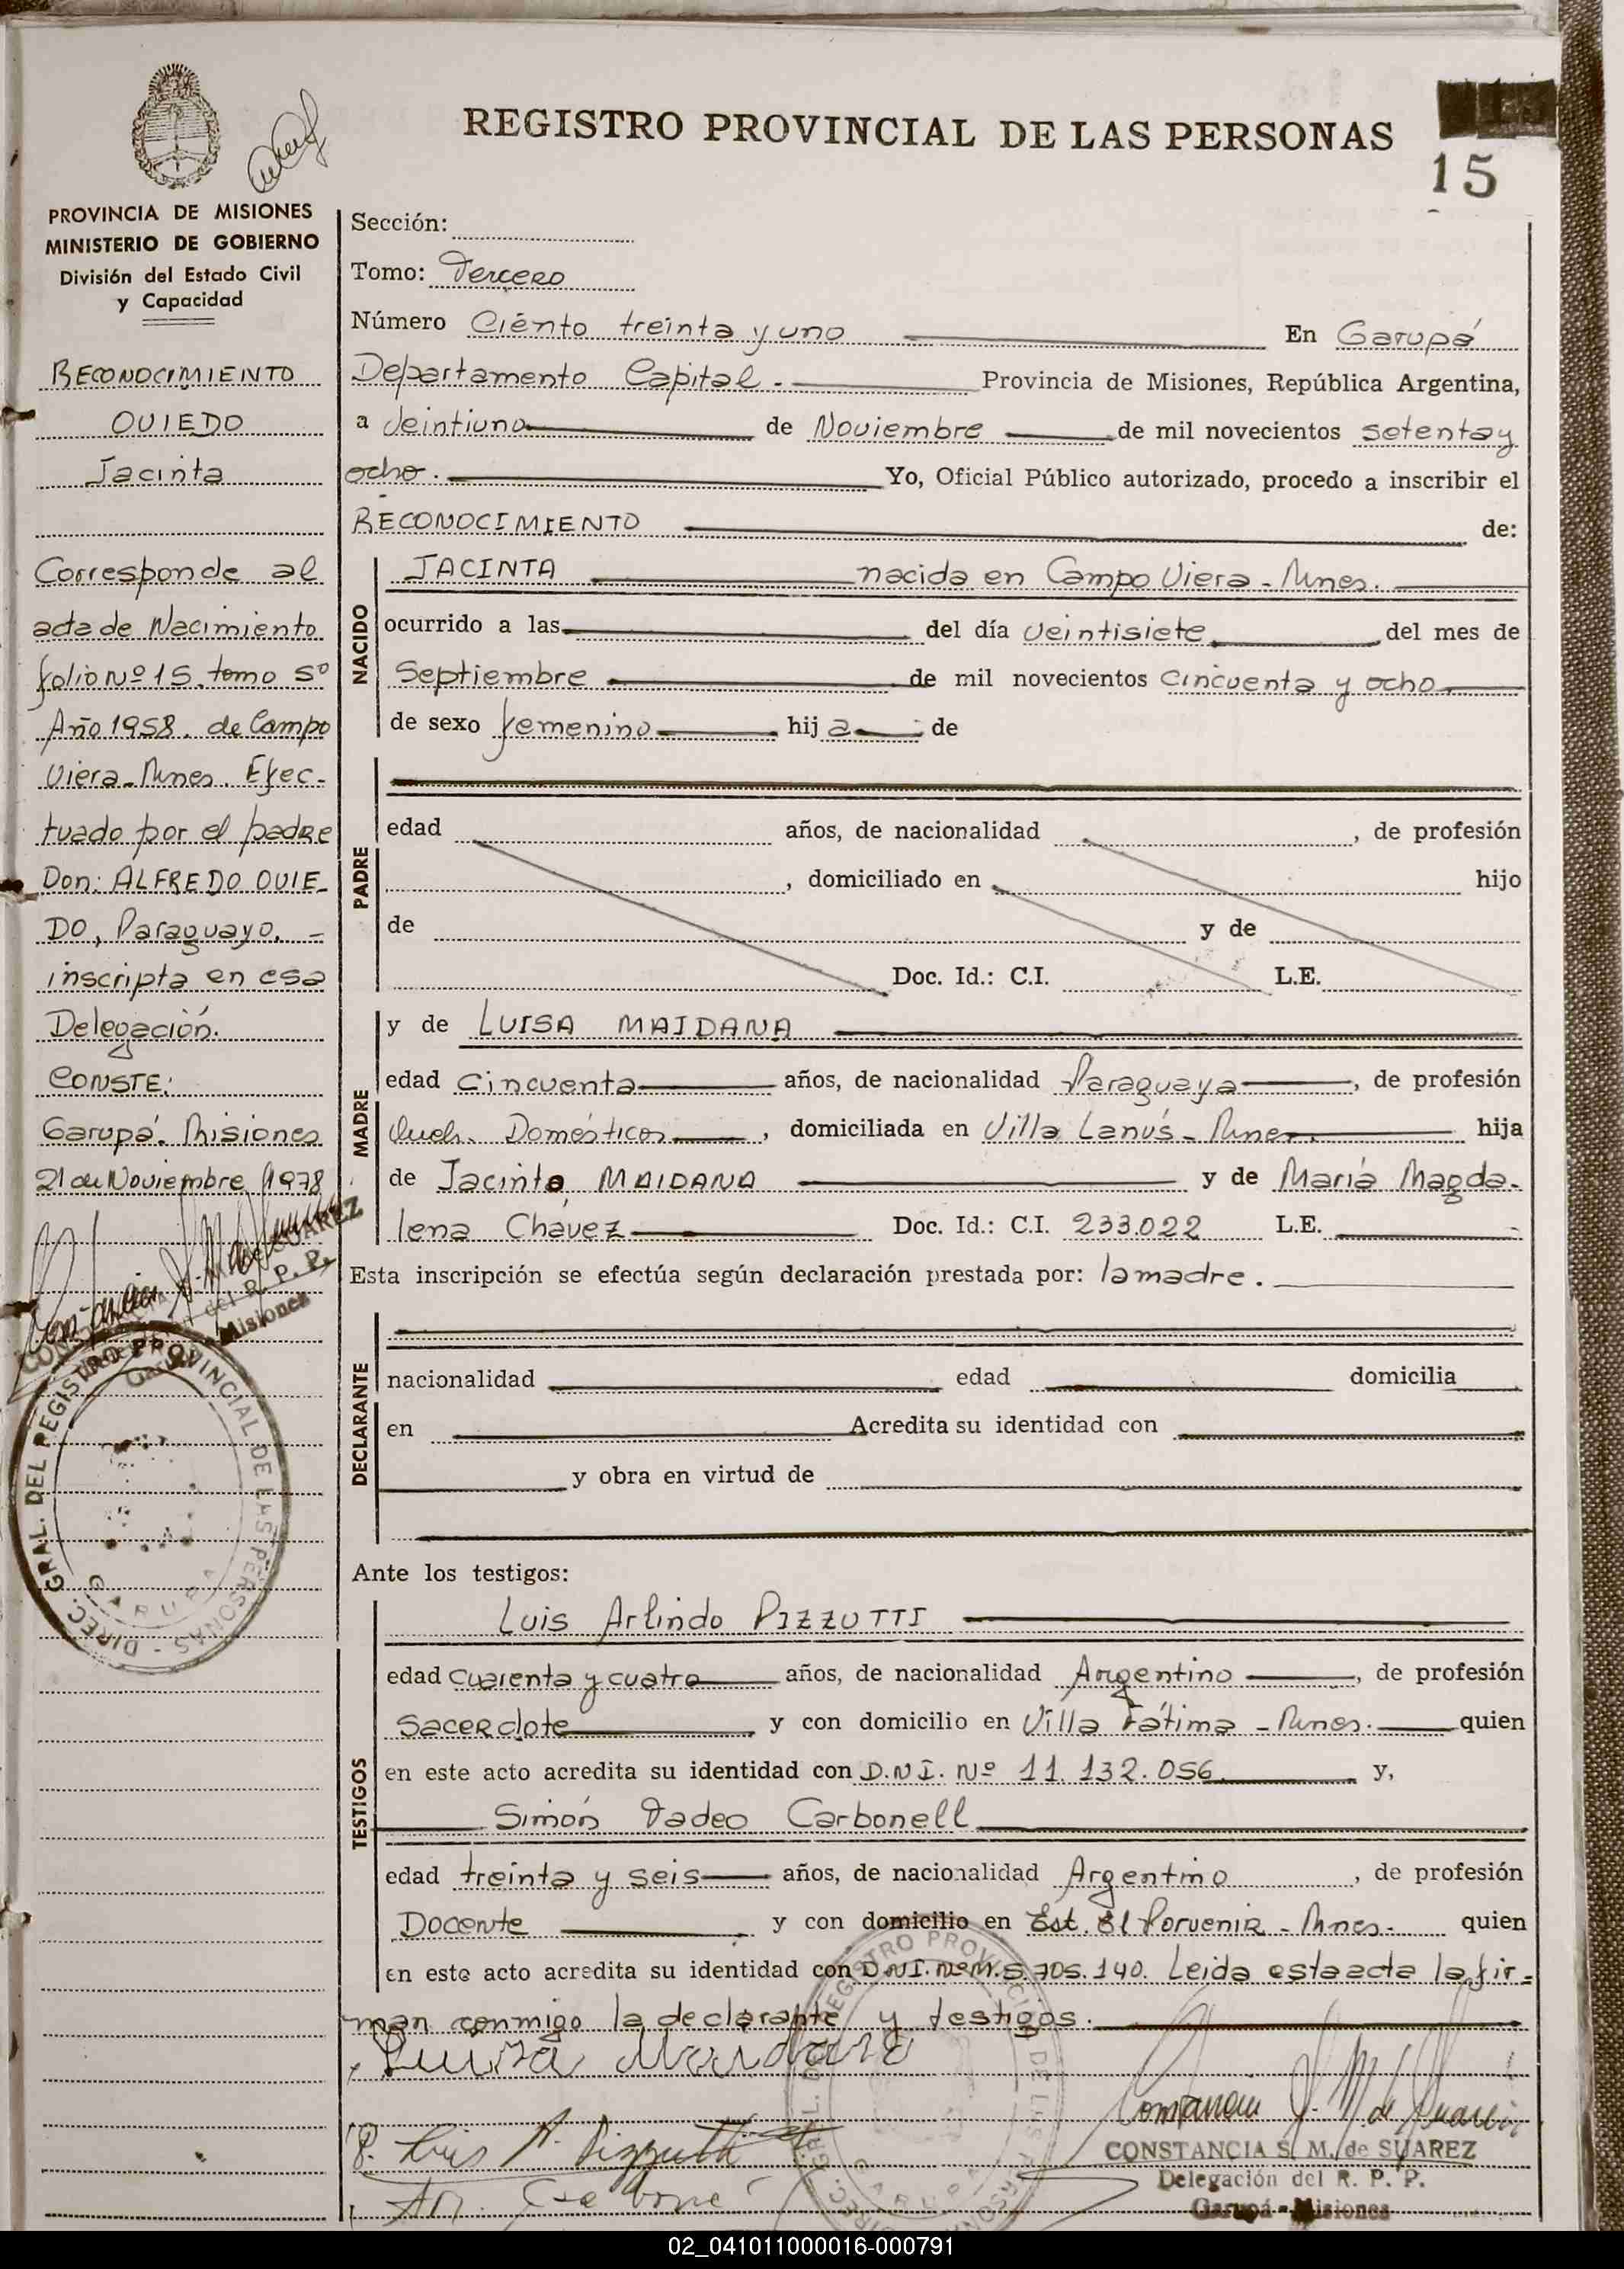 REGISTRO PROVINCIAL DE LAS PERSONAS
15
PROVINCIA DE MISIONES
MINISTERIO DE GOBIERNO
División del Estado Civil
y Capacidad
RECONOCIMIENTO
OVIEDO
Jacinta
Corresponde al
acta de Nacimiento
folio Nº 15. tomo 5º
Año 1958. de Campo
Viera - Mnes. Efec-
tuado por el padre
Don: ALFREDO OVIE-
DO, Paraguayo. -
inscripta en esa
Delegación.
CONSTE:
Garupá. Misiones
21 de Noviembre 1978
SUAREZ
del R. P. P.
Misiones
DIREC. GRAL. DEL REGISTRO PROVINCIAL DE LAS PERSONAS - GARUPA
Sección:
Tomo: Tercero
Número Ciento treinta y uno En Garupá
Departamento Capital. - Provincia de Misiones, República Argentina,
a veintiuno de Noviembre de mil novecientos setenta y
ocho. Yo, Oficial Público autorizado, procedo a inscribir el
RECONOCIMIENTO de:
NACIDO
JACINTA nacida en Campo Viera - Mnes.
ocurrido a las del día veintisiete del mes de
Septiembre de mil novecientos cincuenta y ocho
de sexo femenino hija de
PADRE
edad años, de nacionalidad , de profesión
, domiciliado en hijo
de y de
Doc. Id.: C.I. L.E.
MADRE
y de LUISA MAIDANA
edad Cincuenta años, de nacionalidad Paraguaya , de profesión
Queh. Domésticos , domiciliada en Villa Lanús - Mnes. hija
de Jacinto MAIDANA y de María Magda-
lena Chávez Doc. Id.: C.I. 233.022 L.E.
Esta inscripción se efectúa según declaración prestada por: la madre.
DECLARANTE
nacionalidad edad domicilia
en Acredita su identidad con
y obra en virtud de
Ante los testigos:
TESTIGOS
Luis Arlindo PIZZUTTI
edad cuarenta y cuatro años, de nacionalidad Argentino , de profesión
Sacerdote y con domicilio en Villa Fátima - Mnes. quien
en este acto acredita su identidad con D.N.I. Nº 11.132.056 y,
Simón Tadeo Carbonell
edad treinta y seis años, de nacionalidad Argentino , de profesión
Docente y con domicilio en Est. El Porvenir - Mnes. quien
en este acto acredita su identidad con D.N.I. 5.705.140. Leida esta acta la fir-
man conmigo la declarante y testigos.
Luisa Maidana
P. Luis A. Pizzutti
Constancia S. M. de Suarez
CONSTANCIA S. M. de SUAREZ
Delegación del R. P. P.
Garupá - Misiones
DIREC. GRAL. DEL REGISTRO PROVINCIAL DE LAS PERSONAS GARUPA
02_041011000016-000791